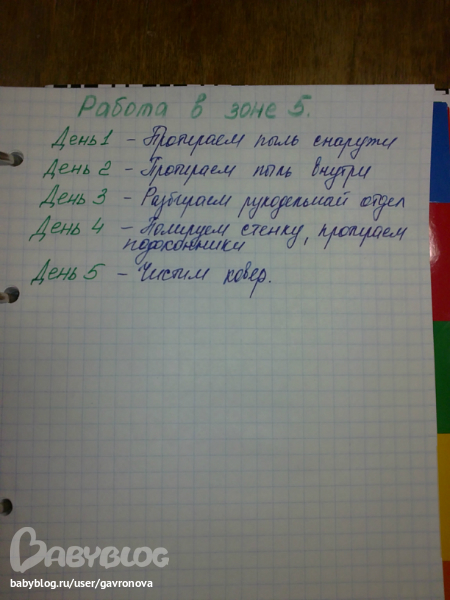 Работа в зоне 5.
День 1 - Протираем пыль снаружи
День 2 - Протираем пыль внутри
День 3 - Разбираем рукодельный отдел
День 4 - Полируем стенку, протираем
подоконники
День 5 - Чистим ковер.
BABYBLOG
babyblog.ru/user/gavronova